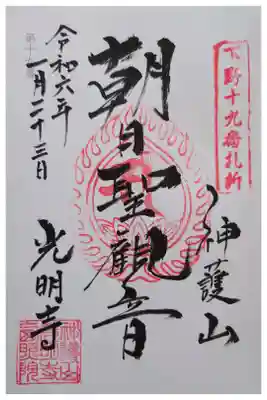 下野十九番札所
神護山
朝日聖観音
光明寺
令和六年
十一月二十三日